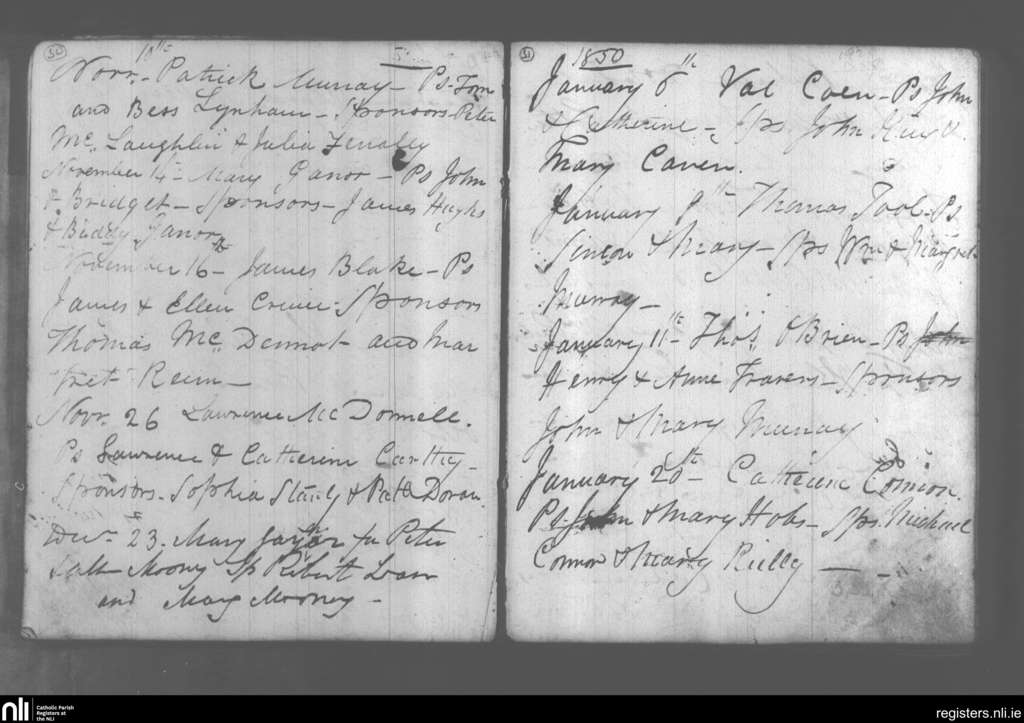 50
10th
Novr. - Patrick Murray - Ps. Tom
and Bess Lynham - Sponsors Peter
Mc. Laughlin & Julia
November 14th - Mary Ganor - Ps John
& Bridget - Sponsors - James Hughs
& Biddy Ganor
November 16th - James Blake - Ps
James & Ellen - Sponsors
Thomas Mc. Dermot - and Mar
Novr. 26 Lawrence McDonnell.
Ps Lawrence & Catherine Carthy -
Sponsors. Sophia & Patk Doran
Decr. 23. Mary Peter
Moony Sp Robert
and Mary Mooney -
51
1850
January 6th Val Coen - Ps John
& Catherine - Sps John
Mary Caven.
January 9th Thomas Tool - Ps
Simon & Mary - Sps Wm & Margret
Murray -
January 11th - Thos. O'Brien - Ps John
Henry & Anne Travers - Sponsors
John & Mary Murray
January 20th - Catherine
Ps. John & Mary Hobs - Sps. Michael
Connor & Mary Reilly
nli
Catholic Parish
Registers at
the NLI
registers.nli.ie